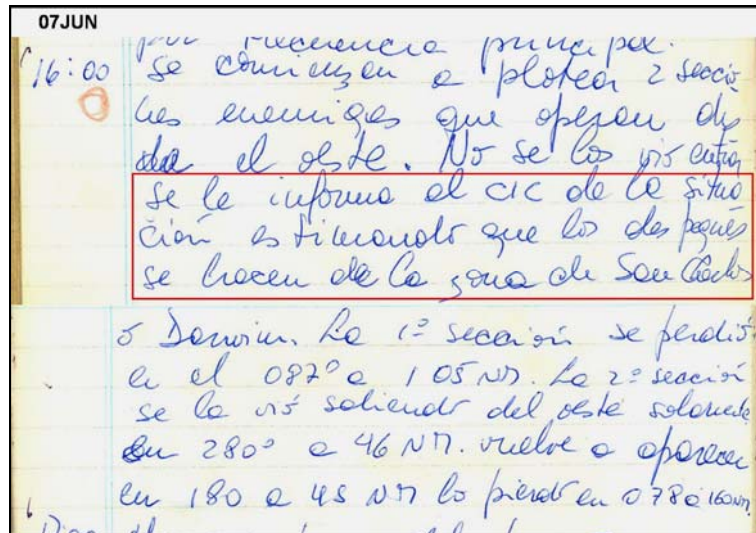 07JUN
por frecuencia principal.
16:00 se comienzan a plotear 2 seccio
nes enemigas que operan des
de el oeste. No se los vió entrar
se le informa al CIC de la situa
ción estimando que los despegues
se hacen de la zona de San Carlos
o Darwin. La 1º sección se perdió
en el 087º a 105 NM. La 2º sección
se la vió saliendo del oeste solamente
en 280º a 46 NM. vuelve a aparecer
en 180 a 45 NM lo pierdo en 078 a 160NM.